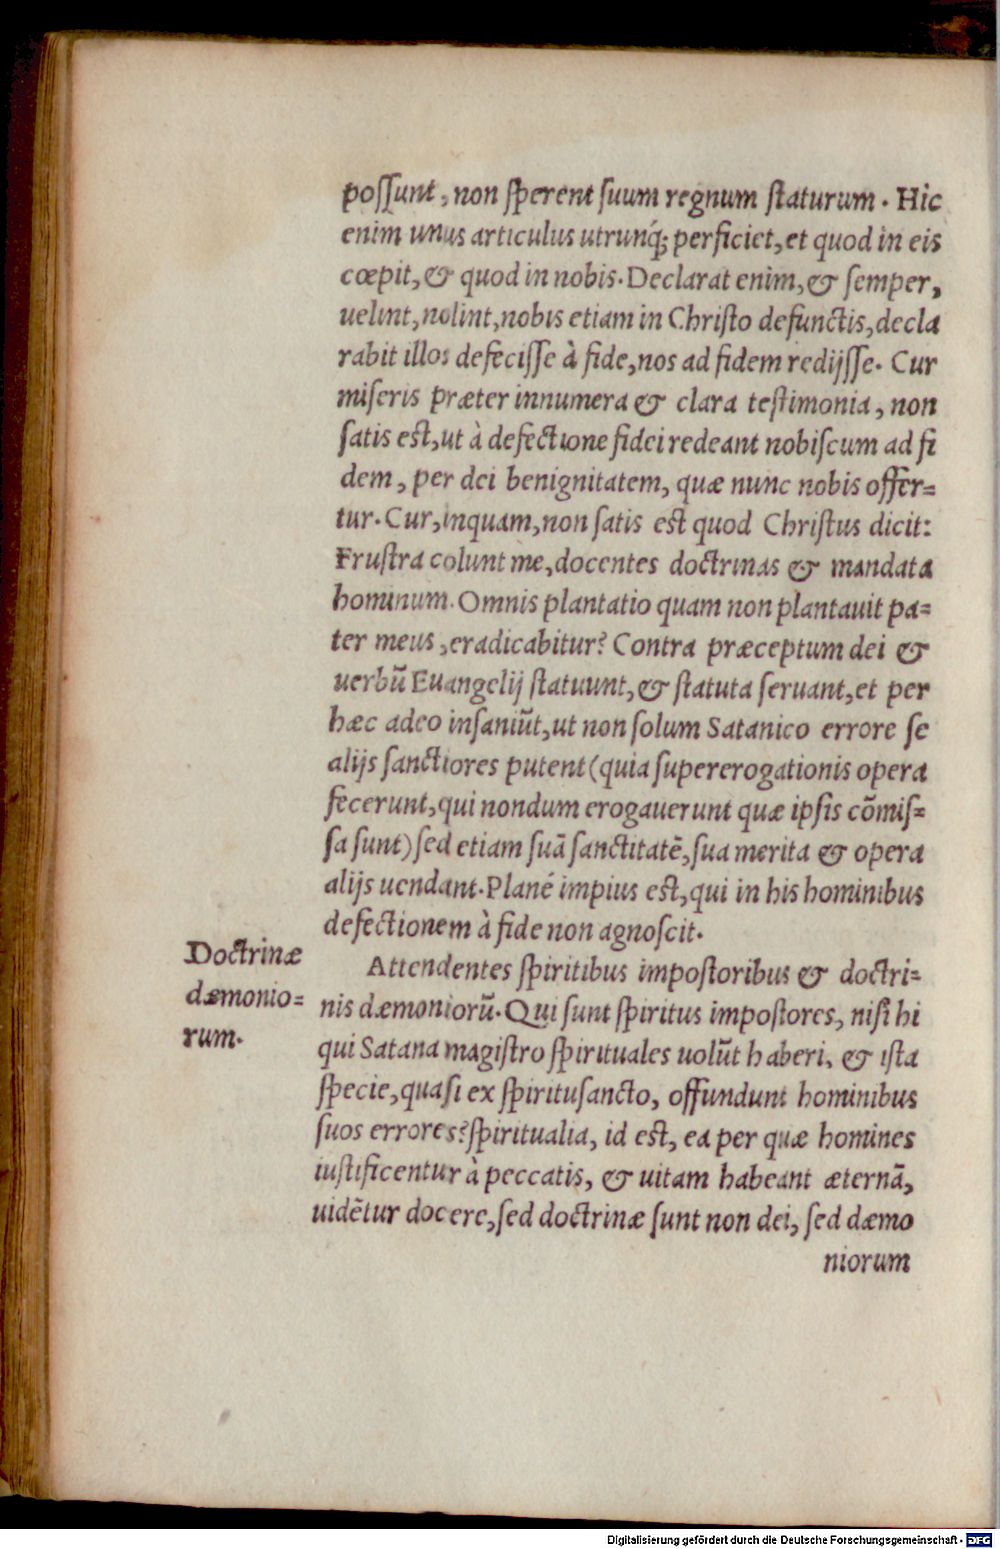 poſſunt, non ſperent ſuum regnum ſtaturum. Hic
enim unus articulus utrunq́; perficiet, et quod in eis
cœpit, & quod in nobis. Declarat enim, & ſemper,
uelint, nolint, nobis etiam in Chriſto defunctis, decla
rabit illos defeciſſe à fide, nos ad fidem redijſſe. Cur
miſeris præter innumera & clara teſtimonia, non
ſatis eſt, ut à defectione fidei redeant nobiſcum ad fi
dem, per dei benignitatem, quæ nunc nobis offer=
tur. Cur, inquam, non ſatis eſt quod Chriſtus dicit:
Fruſtra colunt me, docentes doctrinas & mandata
hominum. Omnis plantatio quam non plantauit pa=
ter meus, eradicabitur? Contra præceptum dei &
uerbũ Euangelij ſtatuunt, & ſtatuta ſeruant, et per
hæc adeo inſaniũt, ut non ſolum Satanico errore ſe
alijs ſanctiores putent (quia ſupererogationis opera
fecerunt, qui nondum erogauerunt quæ ipſis cõmiſ=
ſa ſunt) ſed etiam ſuã ſanctitatẽ, ſua merita & opera
alijs uendant. Plané impius eſt, qui in his hominibus
defectionem à fide non agnoſcit.
Doctrinæ
dæmonio=
rum.
Attendentes ſpiritibus impoſtoribus & doctri=
nis dæmoniorũ. Qui ſunt ſpiritus impoſtores, niſi hi
qui Satana magiſtro ſpirituales uolũt haberi, & iſta
ſpecie, quaſi ex ſpirituſancto, offundunt hominibus
ſuos errores? ſpiritualia, id eſt, ea per quæ homines
iuſtificentur à peccatis, & uitam habeant æternã,
uidẽtur docere, ſed doctrinæ ſunt non dei, ſed dæmo
niorum
Digitalisierung gefördert durch die Deutsche Forschungsgemeinschaft - DFG